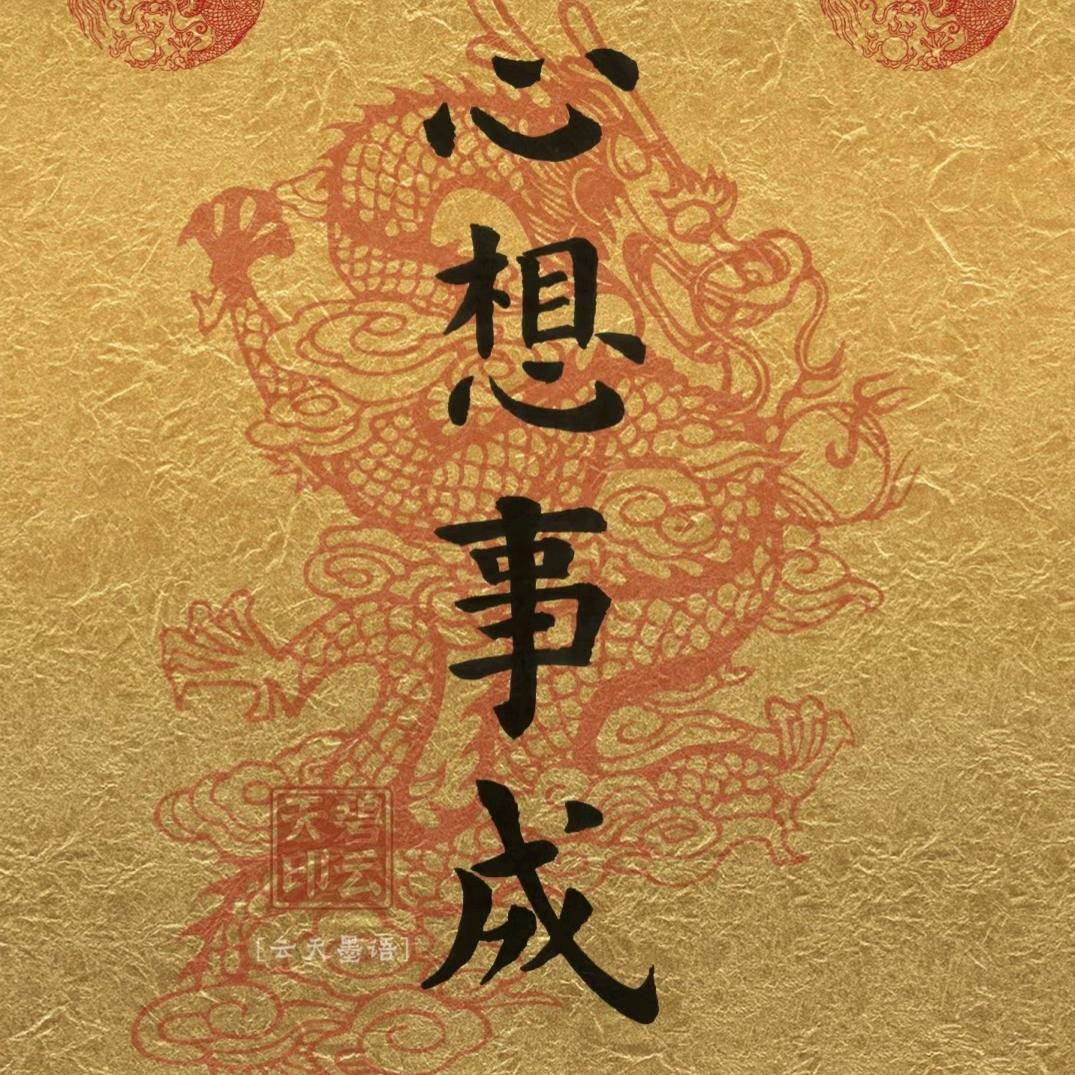 心想事成
碧云天印
[云天墨语]